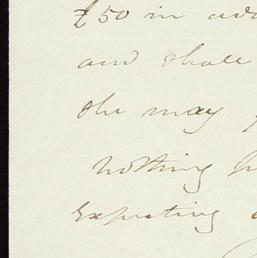 £50 in
and shall
she may
nothing
Expecting